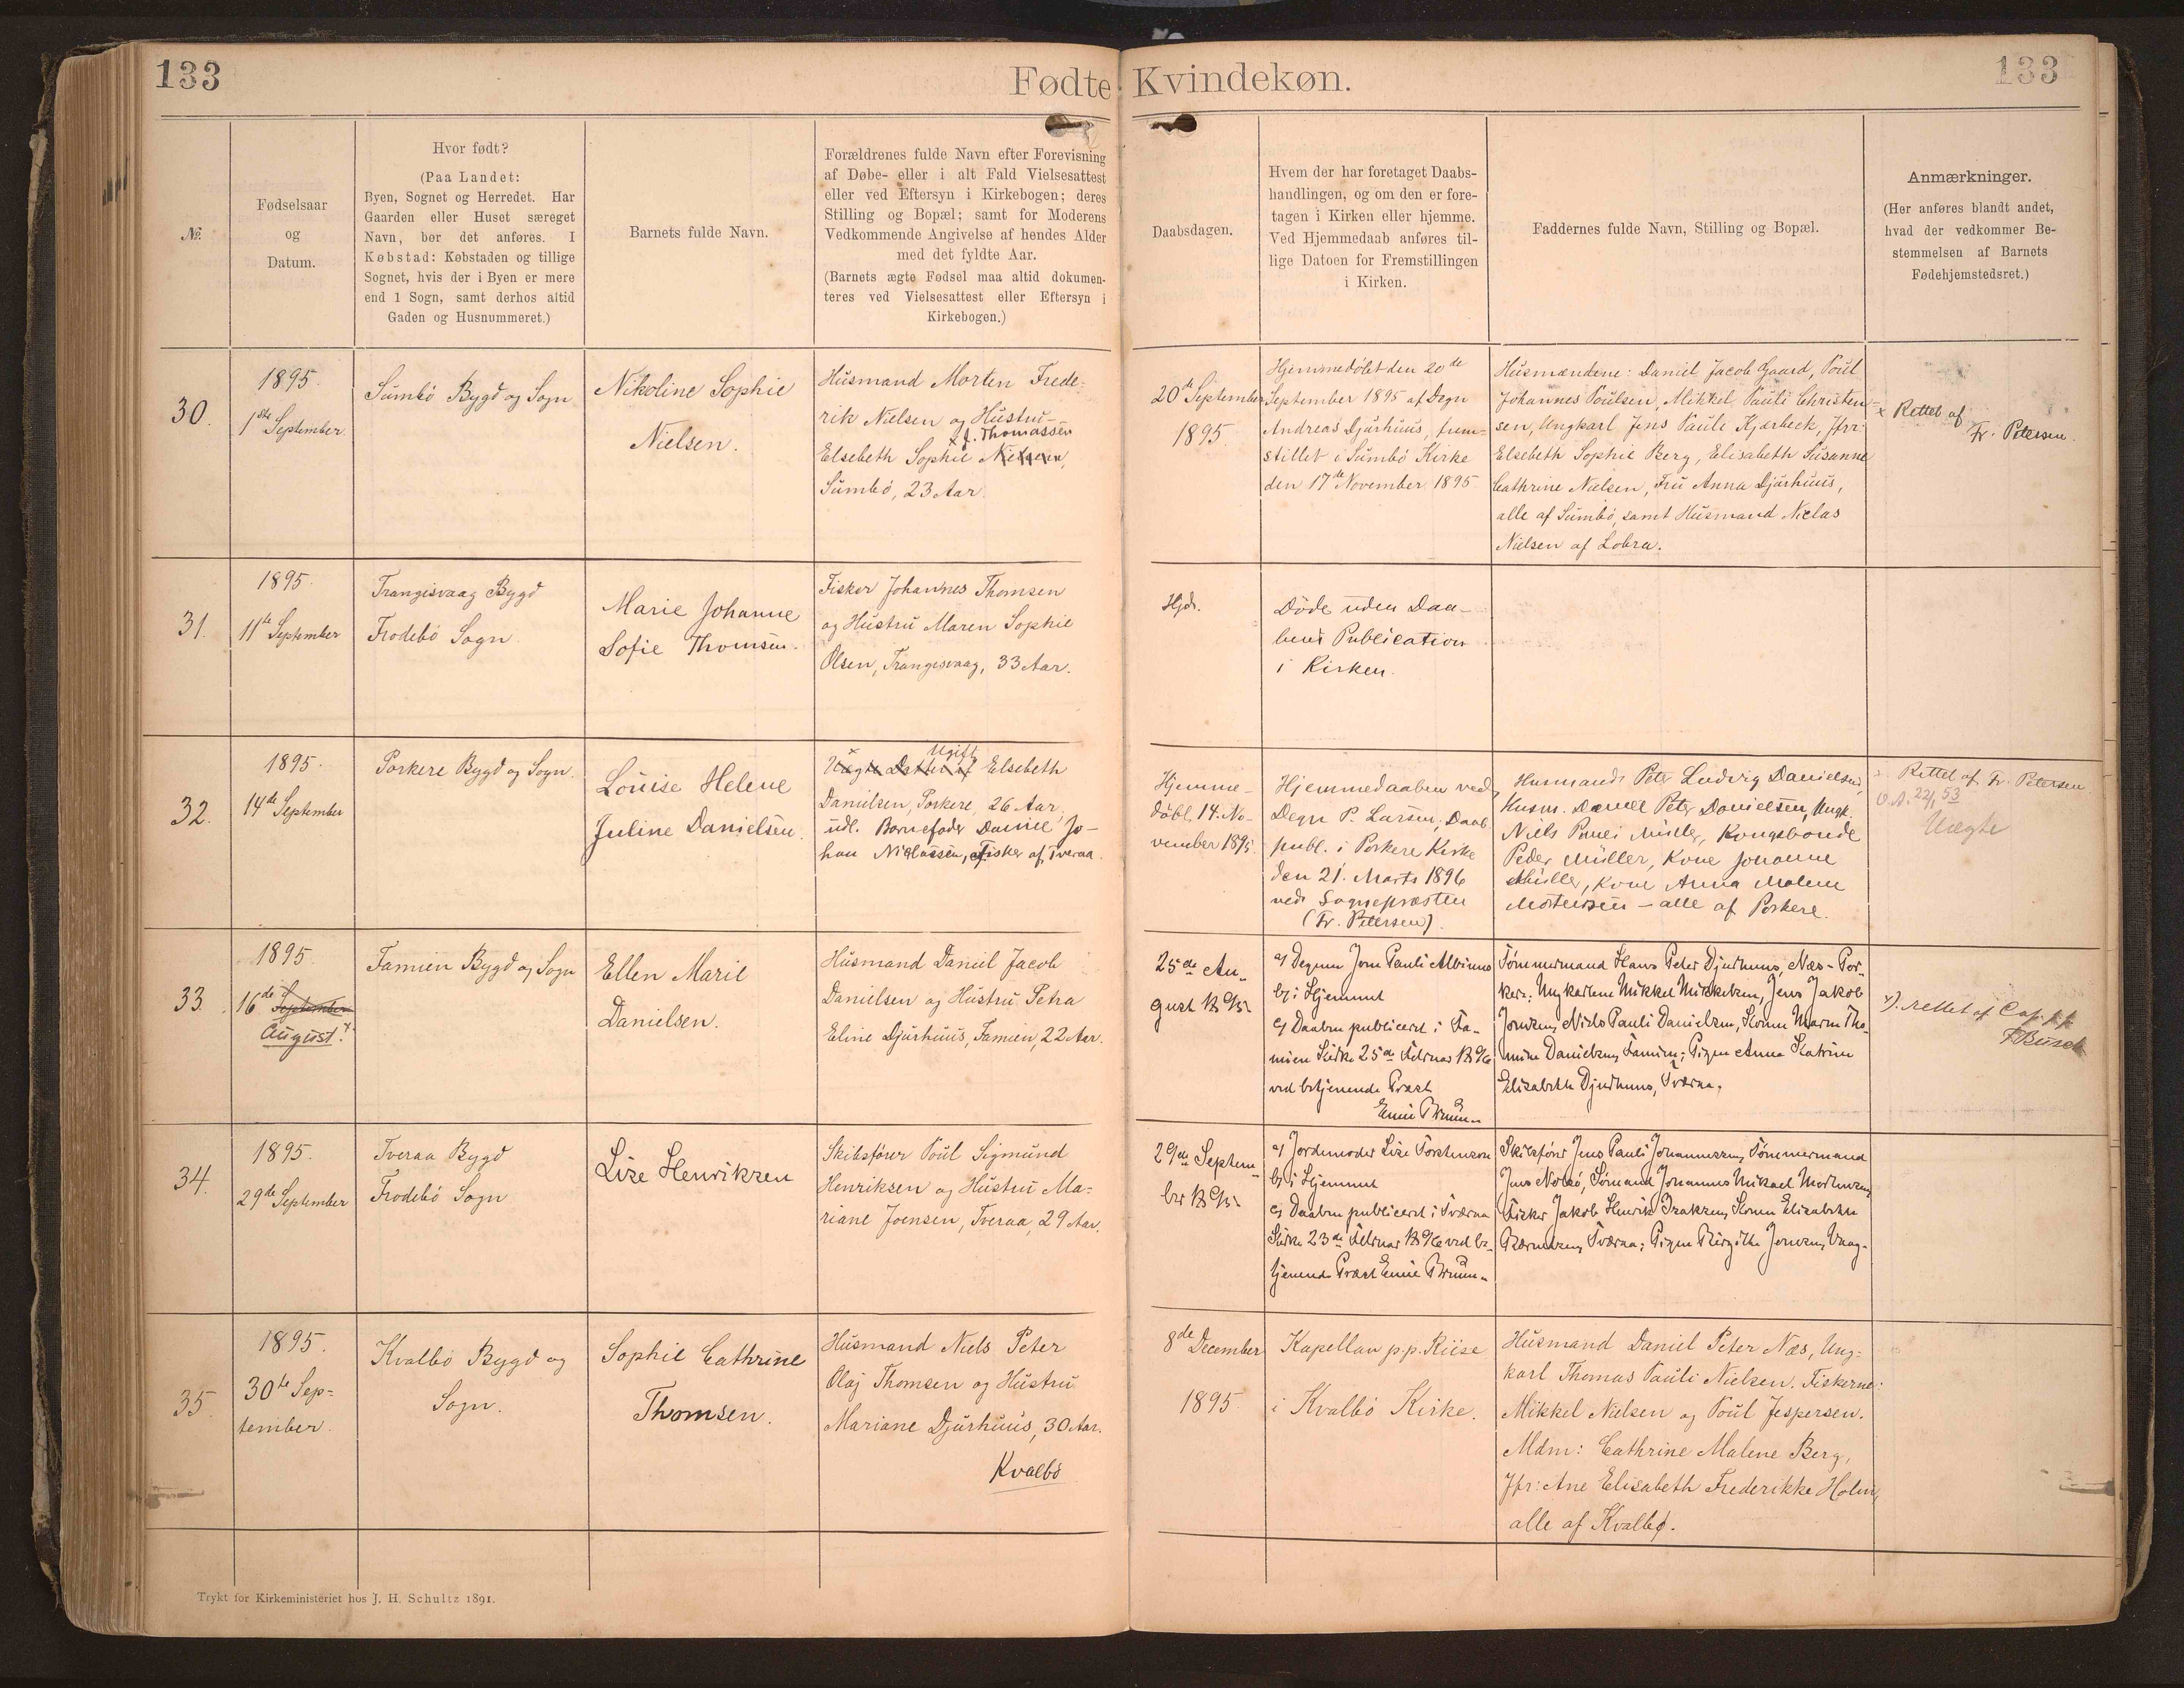 133
Fødte Kvindekøn.
133
№.
Fødselsaar
og
Datum.
Hvor født?
(Paa Landet:
Byen, Sognet og Herredet. Har
Gaarden eller Huset særeget
Navn, bør det anføres. I
Købstad: Købstaden og tillige
Sognet, hvis der i Byen er mere
end 1 Sogn, samt derhos altid
Gaden og Husnummeret.)
Barnets fulde Navn.
Forældrenes fulde Navn efter Forevisning
af Døbe- eller i alt Fald Vielsesattest
eller ved Eftersyn i Kirkebogen; deres
Stilling og Bopæl; samt for Moderens
Vedkommende Angivelse af hendes Alder
med det fyldte Aar.
(Barnets ægte Fødsel maa altid dokumen-
teres ved Vielsesattest eller Eftersyn i
Kirkebogen.)
Daabsdagen.
Hvem der har foretaget Daabs-
handlingen, og om den er fore-
tagen i Kirken eller hjemme.
Ved Hjemmedaab anføres til-
lige Datoen for Fremstillingen
i Kirken.
Faddernes fulde Navn, Stilling og Bopæl.
Anmærkninger.
(Her anføres blandt andet,
hvad der vedkommer Be-
stemmelsen af Barnets
Fødehjemstedsret.)
30.
1895.
1ste September.
Sumbö Bygd og Sogn
Nikoline Sophie
Nielsen.
Husmand Morten Frede-
rik Nielsen og Hustru
x f. Thomassen
Elsebeth Sophie Nielsen,
Sumbö, 23 Aar.
20de September
1895.
Hjemmedöbt den 20de
September 1895 af Degn
Andreas Djurhuus, frem-
stillet i Sumbö Kirke
den 17de November 1895
Husmændene: Daniel Jacob Gaard, Poul
Johannes Poulsen, Mikkel Pauli Christen-
sen, Ungkarl Jens Pauli Kjærbeck, Jfrr:
Elsebeth Sophie Berg, Elisabeth Susanne
Cathrine Nielsen, Fru Anna Djurhuus,
alle af Sumbö, samt Husmand Niclas
Nielsen af Lobra.
x Rettet af
Fr. Petersen.
31.
1895.
11te September
Trangisvaag Bygd
Frodebö Sogn.
Marie Johanne
Sofie Thomsen.
Fisker Johannes Thomsen
og Hustru Maren Sophie
Olsen, Trangisvaag, 33 Aar.
Hjd.
Döde uden Daa-
bens Publication
i Kirken.
32.
1895.
14de September
Porkere Bygd og Sogn.
Louise Helene
Juline Danielsen.
x Ugift
Uægte Datter af Elsebeth
Danielsen, Porkere, 26 Aar,
udl. Barnefader Daniel Jo-
han Niclassen, Fisker af Tveraa.
Hjemme-
döbt 14. No-
vember 1895.
Hjemmedaaben ved
Degn P. Larsen; Daab
publ. i Porkere Kirke
den 21. Marts 1896
ved Sognepræsten
(Fr. Petersen).
Husmand Peter Ludvig Danielsen,
Husm. Daniel Peter Danielsen, Ungk.
Niels Pauli Müller, Kongsbonde
Peder Müller, Kone Johanne
Müller, Kone Anna Malene
Mortensen – alle af Porkere.
x Rettet af Fr. Petersen.
22/1 53
Uægte
33.
1895.
16de September
August x)
Famien Bygd og Sogn
Ellen Marie
Danielsen.
Husmand Daniel Jacob
Danielsen og Hustru Petra
Eline Djurhuus, Famien, 22 Aar.
25de Au-
gust 1895.
a) Degnen Joen Pauli Albinus
b) i Hjemmet
c) Daaben publiceret i Fa-
mien Kirke 25de Februar 1896
ved betjenende Præst
Emil Bruun.
Tømmermand Hans Peter Djurhuus, Næs-Por-
kere; Ungkarlene Mikkel Mikkelsen, Jens Jakob
Joensen, Niels Pauli Danielsen, Konen Maren Tho-
mine Danielsen, Famien; Pigen Anna Katrine
Elisabeth Djurhuus, Tværaa.
x). rettet af Cap.
Busch
34.
1895.
29de September
Tveraa Bygd
Frodebö Sogn
Lise Henriksen
Skibsförer Poul Sigmund
Henriksen og Hustru Ma-
riane Joensen, Tveraa, 29 Aar.
29de Septem-
ber 1895.
a) Jordemoder Lise Torstensen
b) i Hjemmet
c) Daaben publiceret i Tværaa
Kirke 23de Februar 1896 ved be-
tjenende Præst Emil Bruun.
Skibsfører Jens Pauli Johannessen, Tømmermand
Jens Nolsø, Sømand Johannes Mikael Mortensen,
Fisker Jakob Henrik Isaksen, Konen Elisabeth
Tværaa; Pigen Birgithe Joensen, Vaag.
35.
1895.
30te Sep-
tember.
Kvalbö Bygd og
Sogn.
Sophie Cathrine
Thomsen.
Husmand Niels Peter
Olaj Thomsen og Hustru
Mariane Djurhuus, 30 Aar.
Kvalbö
8de December
1895.
Kapellan p.p. Riise
i Kvalbö Kirke.
Husmand Daniel Peter Næs, Ung-
karl Thomas Pauli Nielsen. Fiskerne:
Mikkel Nielsen og Poul Jespersen.
Mdm: Cathrine Malene Berg,
Jfr: Ane Elisabeth Frederikke Holm,
alle af Kvalbø.
Trykt for Kirkeministeriet hos J. H. Schultz 1891.